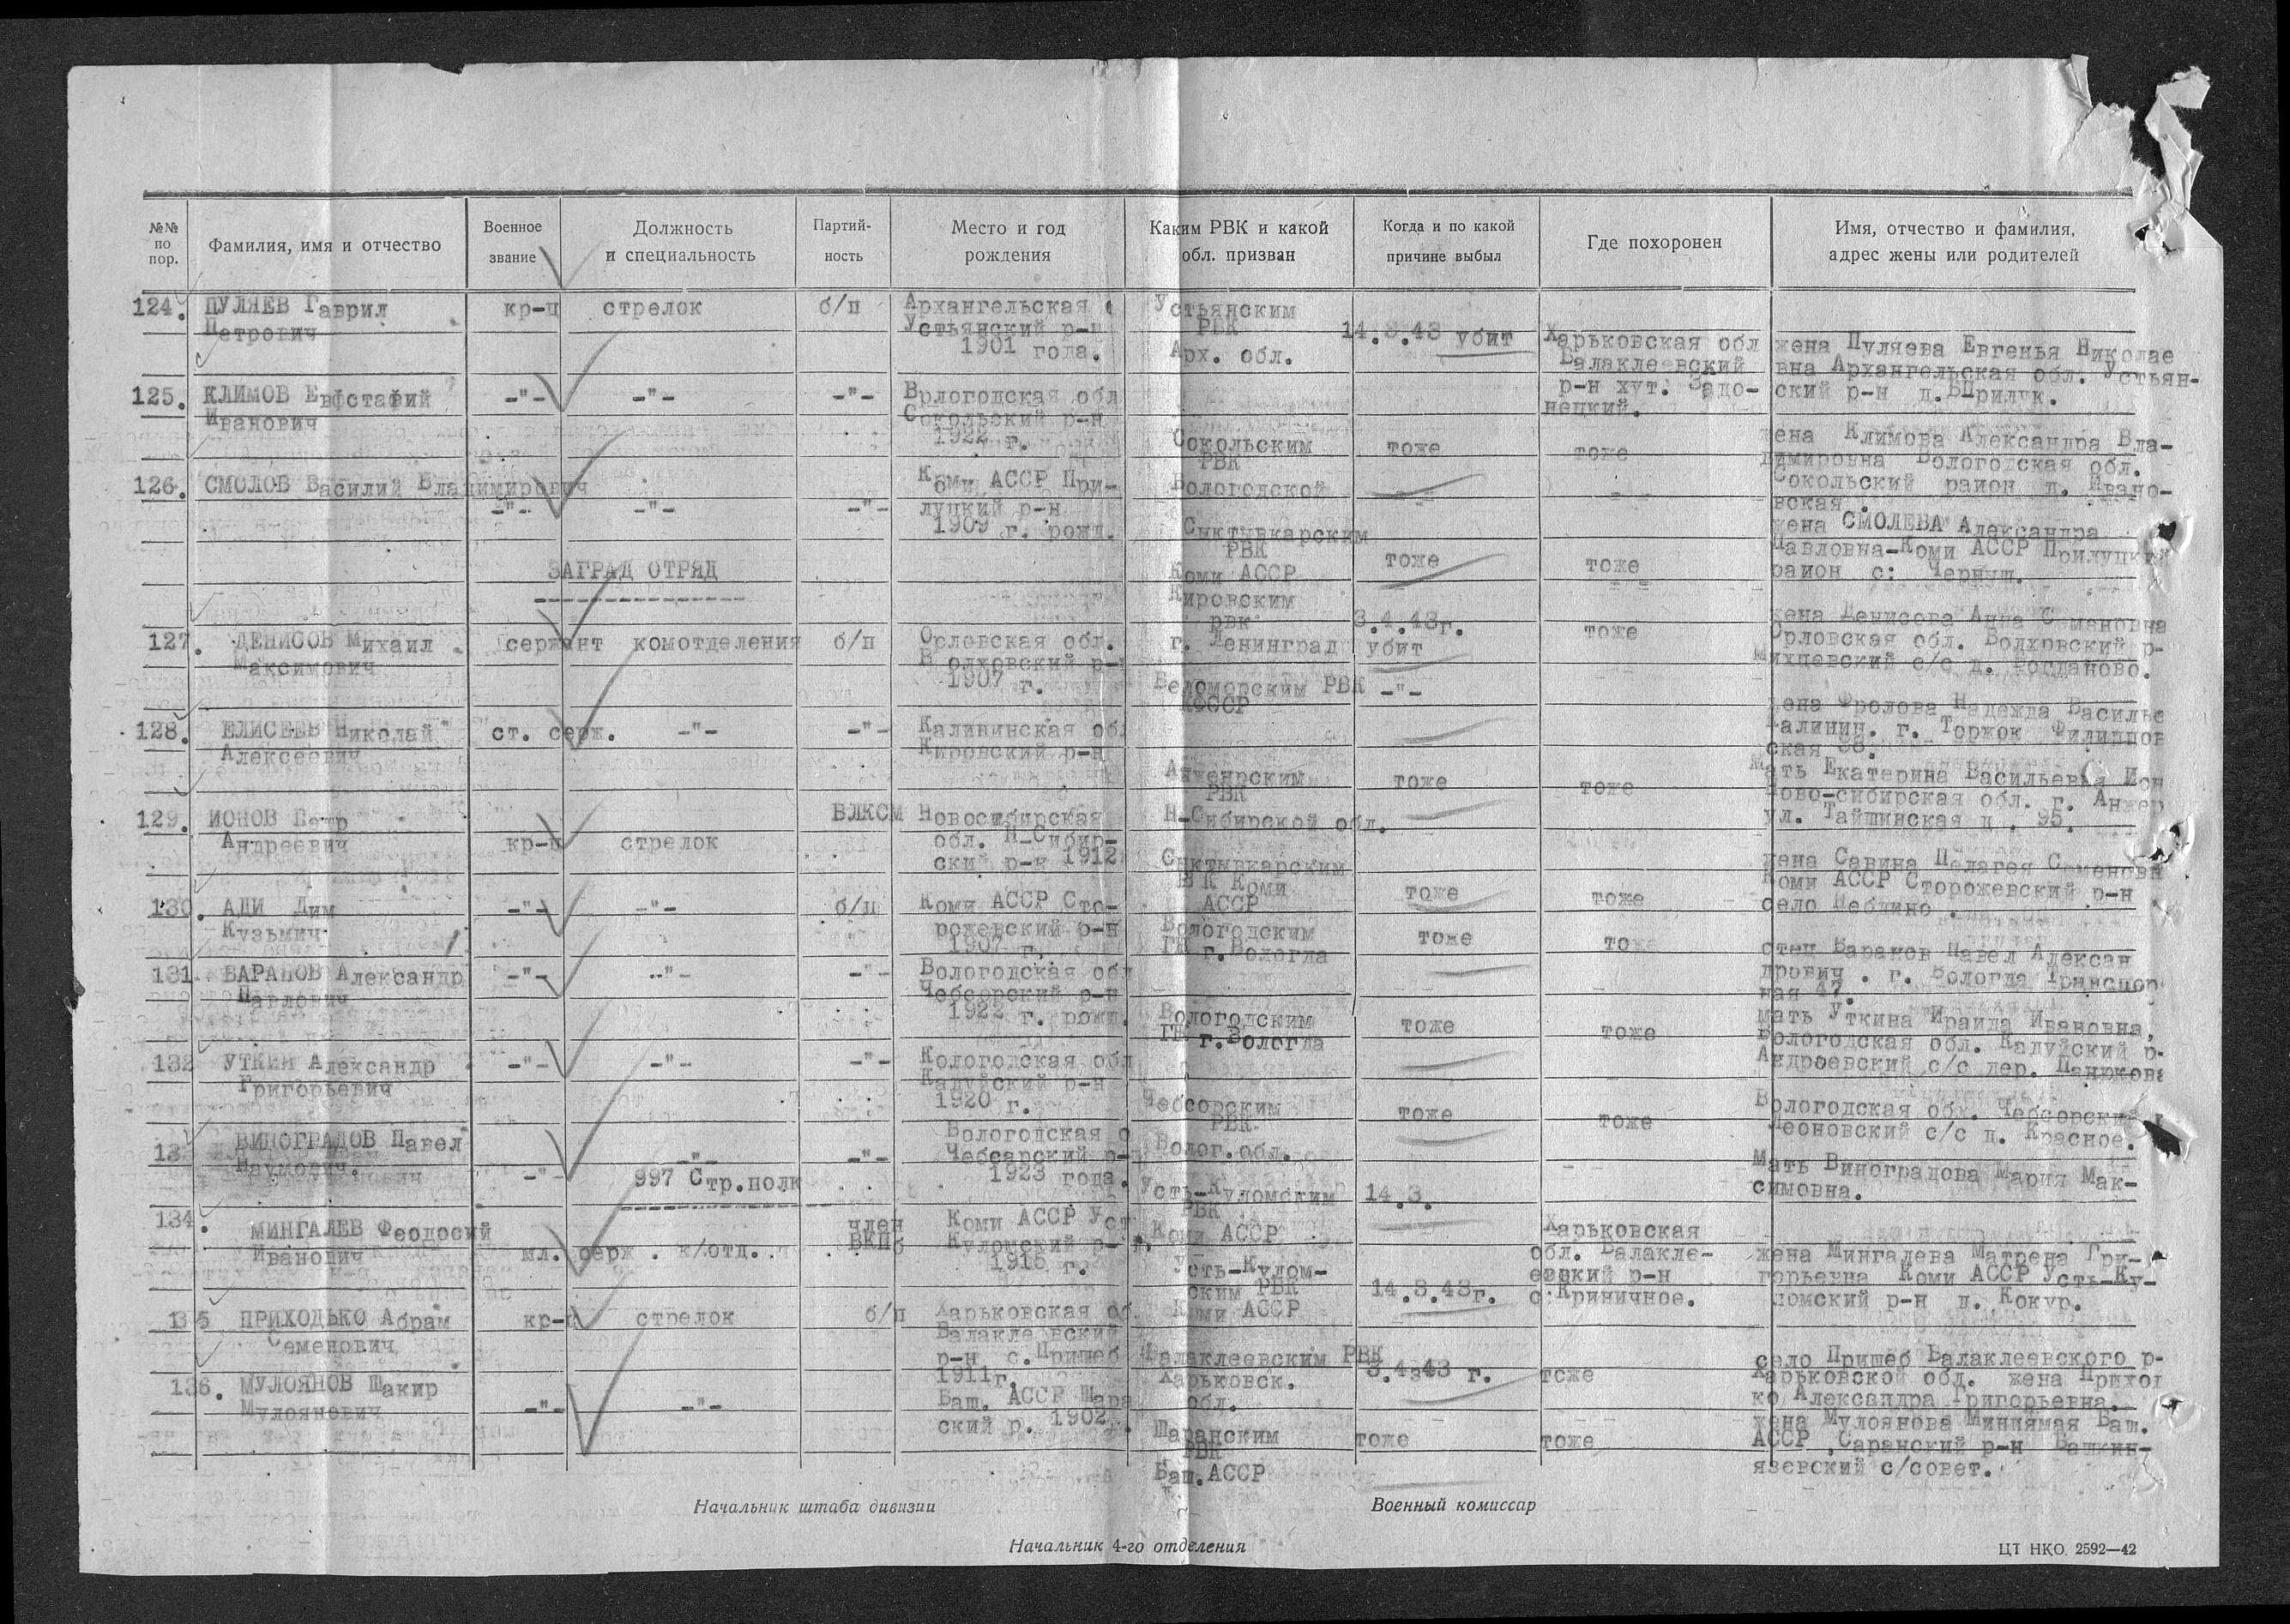 №№ по пор.
Фамилия, имя и отчество
Военное звание
Должность и специальность
Партий-ность
Место и год рождения
Каким РВК и какой обл. призван
Когда и по какой причине выбыл
Где похоронен
Имя, отчество и фамилия, адрес жены или родителей
124. ПУЛЯЕВ Гаврил кр-ц стрелок б/п Архангельская Устьянским
Петрович Устьянский р-н РВК 14.3.43 убит Харьковская обл жена Пуляева Евгенья Николае
1901 года. Арх. обл. Балаклеевский вна Архангельская обл. Устьян-
р-н хут. Задо- ский р-н д.
нецкий.
125. КЛИМОВ Евфстафий -"- -"- -"- Врлогодская обл
Иванович Сокольский р-н
1922 г. Сокольским тоже тоже жена Климова Александра Вла-
РВК димировна Вологодская обл.
Вологодской Сокольский район д. Ивано-
вская.
126. СМОЛОВ Василий Владимирович Коми АССР При-
-"- -"- -"- луцкий р-н
1909 г. рожд. Сыктывкарским жена СМОЛЕВА Александра
РВК тоже тоже Павловна-Коми АССР Прилуцкий
Коми АССР район с: Черныш.
ЗАГРАД ОТРЯД
Кировским
127. ДЕНИСОВ Михаил сержант комотделения б/п Орловская обл. рвк 3.4.43г. тоже жена Денисова Анна Семеновна
Максимович Волховский р-н г. Ленинград убит Орловская обл. Волховский р-
1907 г. с/с д. Богданово.
128. ЕЛИСЕЕВ Николай ст. серж. -"- -"- Калининская об Беломорским РВК -"- жена Фролова Надежда Василье
Алексеевич Кировский р-н КФССР Калинин. г. Торжок Филиппов
ская
129. ИОНОВ Петр ВЛКСМ Новосибирская РВК тоже тоже Мать Екатерина Васильевна Ион
Андреевич кр-ц стрелок обл. Н-Сибир- Н-Сибирской обл. Ново-сибирская обл. г. Анжер
ский р-н 1912 ул. Тайшинская д. 95.
130. АДИ Дим -"- -"- б/п Коми АССР Сто- Сыктывкарским тоже тоже жена Савина Пелагея Семеновн
Кузьмич рожевский р-н Коми Коми АССР Сторожевский р-н
1907 г. АССР село
131. БАРАНОВ Александр -"- -"- -"- Вологодская обл Вологодским тоже тоже отец Баранов Павел Алексан
Павлович Чебсорский р-н г.Вологда дрович. г. Вологда Транспор
1922 г. рожд. ная 47.
132 УТКИН Александр -"- -"- -"- Кологодская обл Вологодским тоже тоже мать Уткина Ираида Ивановна,
Григорьевич Кадуйский р-н г.Вологда Вологодская обл. Кадуйский р-
1920 г. Андроевский с/с дер. Панюкова
133 ВИНОГРАДОВ Павел -"- -"- -"- Вологодская о Чебсорским тоже тоже Вологодская обл. Чебсорский
Наумович. Чебсарский р-н РВК Леоновский с/с д. Красное.
1923 года. Волог.обл. Мать Виноградова Мария Мак-
симовна.
997 Стр.полк
134. МИНГАЛЕВ Феодосий член Коми АССР Уст Усть-Куломским 14.3. Харьковская
Иванович мл. серж. к/отд. ВКПб Куломский р- РВК обл. Балакле- жена Мингалева Матрена Гри-
1915 г. Коми АССР евский р-н горьевна Коми АССР Усть-Ку-
Усть-Кулом- 14.3.43г. с.Криничное. ломский р-н д. Кокур.
ским РВК
Коми АССР
135 ПРИХОДЬКО Абрам кр-ц стрелок б/п Харьковская об.
Семенович Балаклеевский
р-н с.Пришеб Балаклеевским РВК 3.4.43 г. тоже село Пришеб Балаклеевского р-
1911г. Харьковск. Харьковской обл. жена Приход
обл. ко Александра Григорьевна.
136. МУЛОЯНОВ Шакир -"- -"- Баш. АССР Шара жена Мулоянова Миниямая Баш.
Мулоянович ский р. 1902 Шаранским тоже тоже АССР Саранский р-н Башкин-
РВК язевский с/совет.
Баш.АССР
Начальник штаба дивизии
Военный комиссар
Начальник 4-го отделения
ЦТ НКО. 2592—42